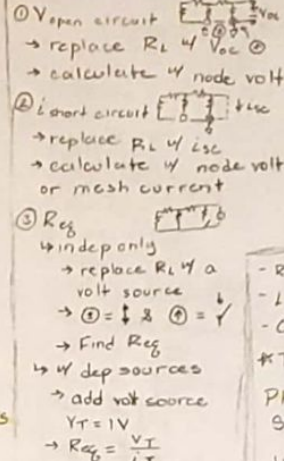 ① V open circuit Voc
→ replace RL w/ Voc
→ calculate w/ node volt
② i short circuit ↓isc
→ replace RL w/ isc
→ calculate w/ node volt
or mesh current
③ Req
↳ indep only
→ replace RL w/ a
volt source
→ Find Req
↳ w/ dep sources
→ add volt source
VT = 1V
→ Req = VT